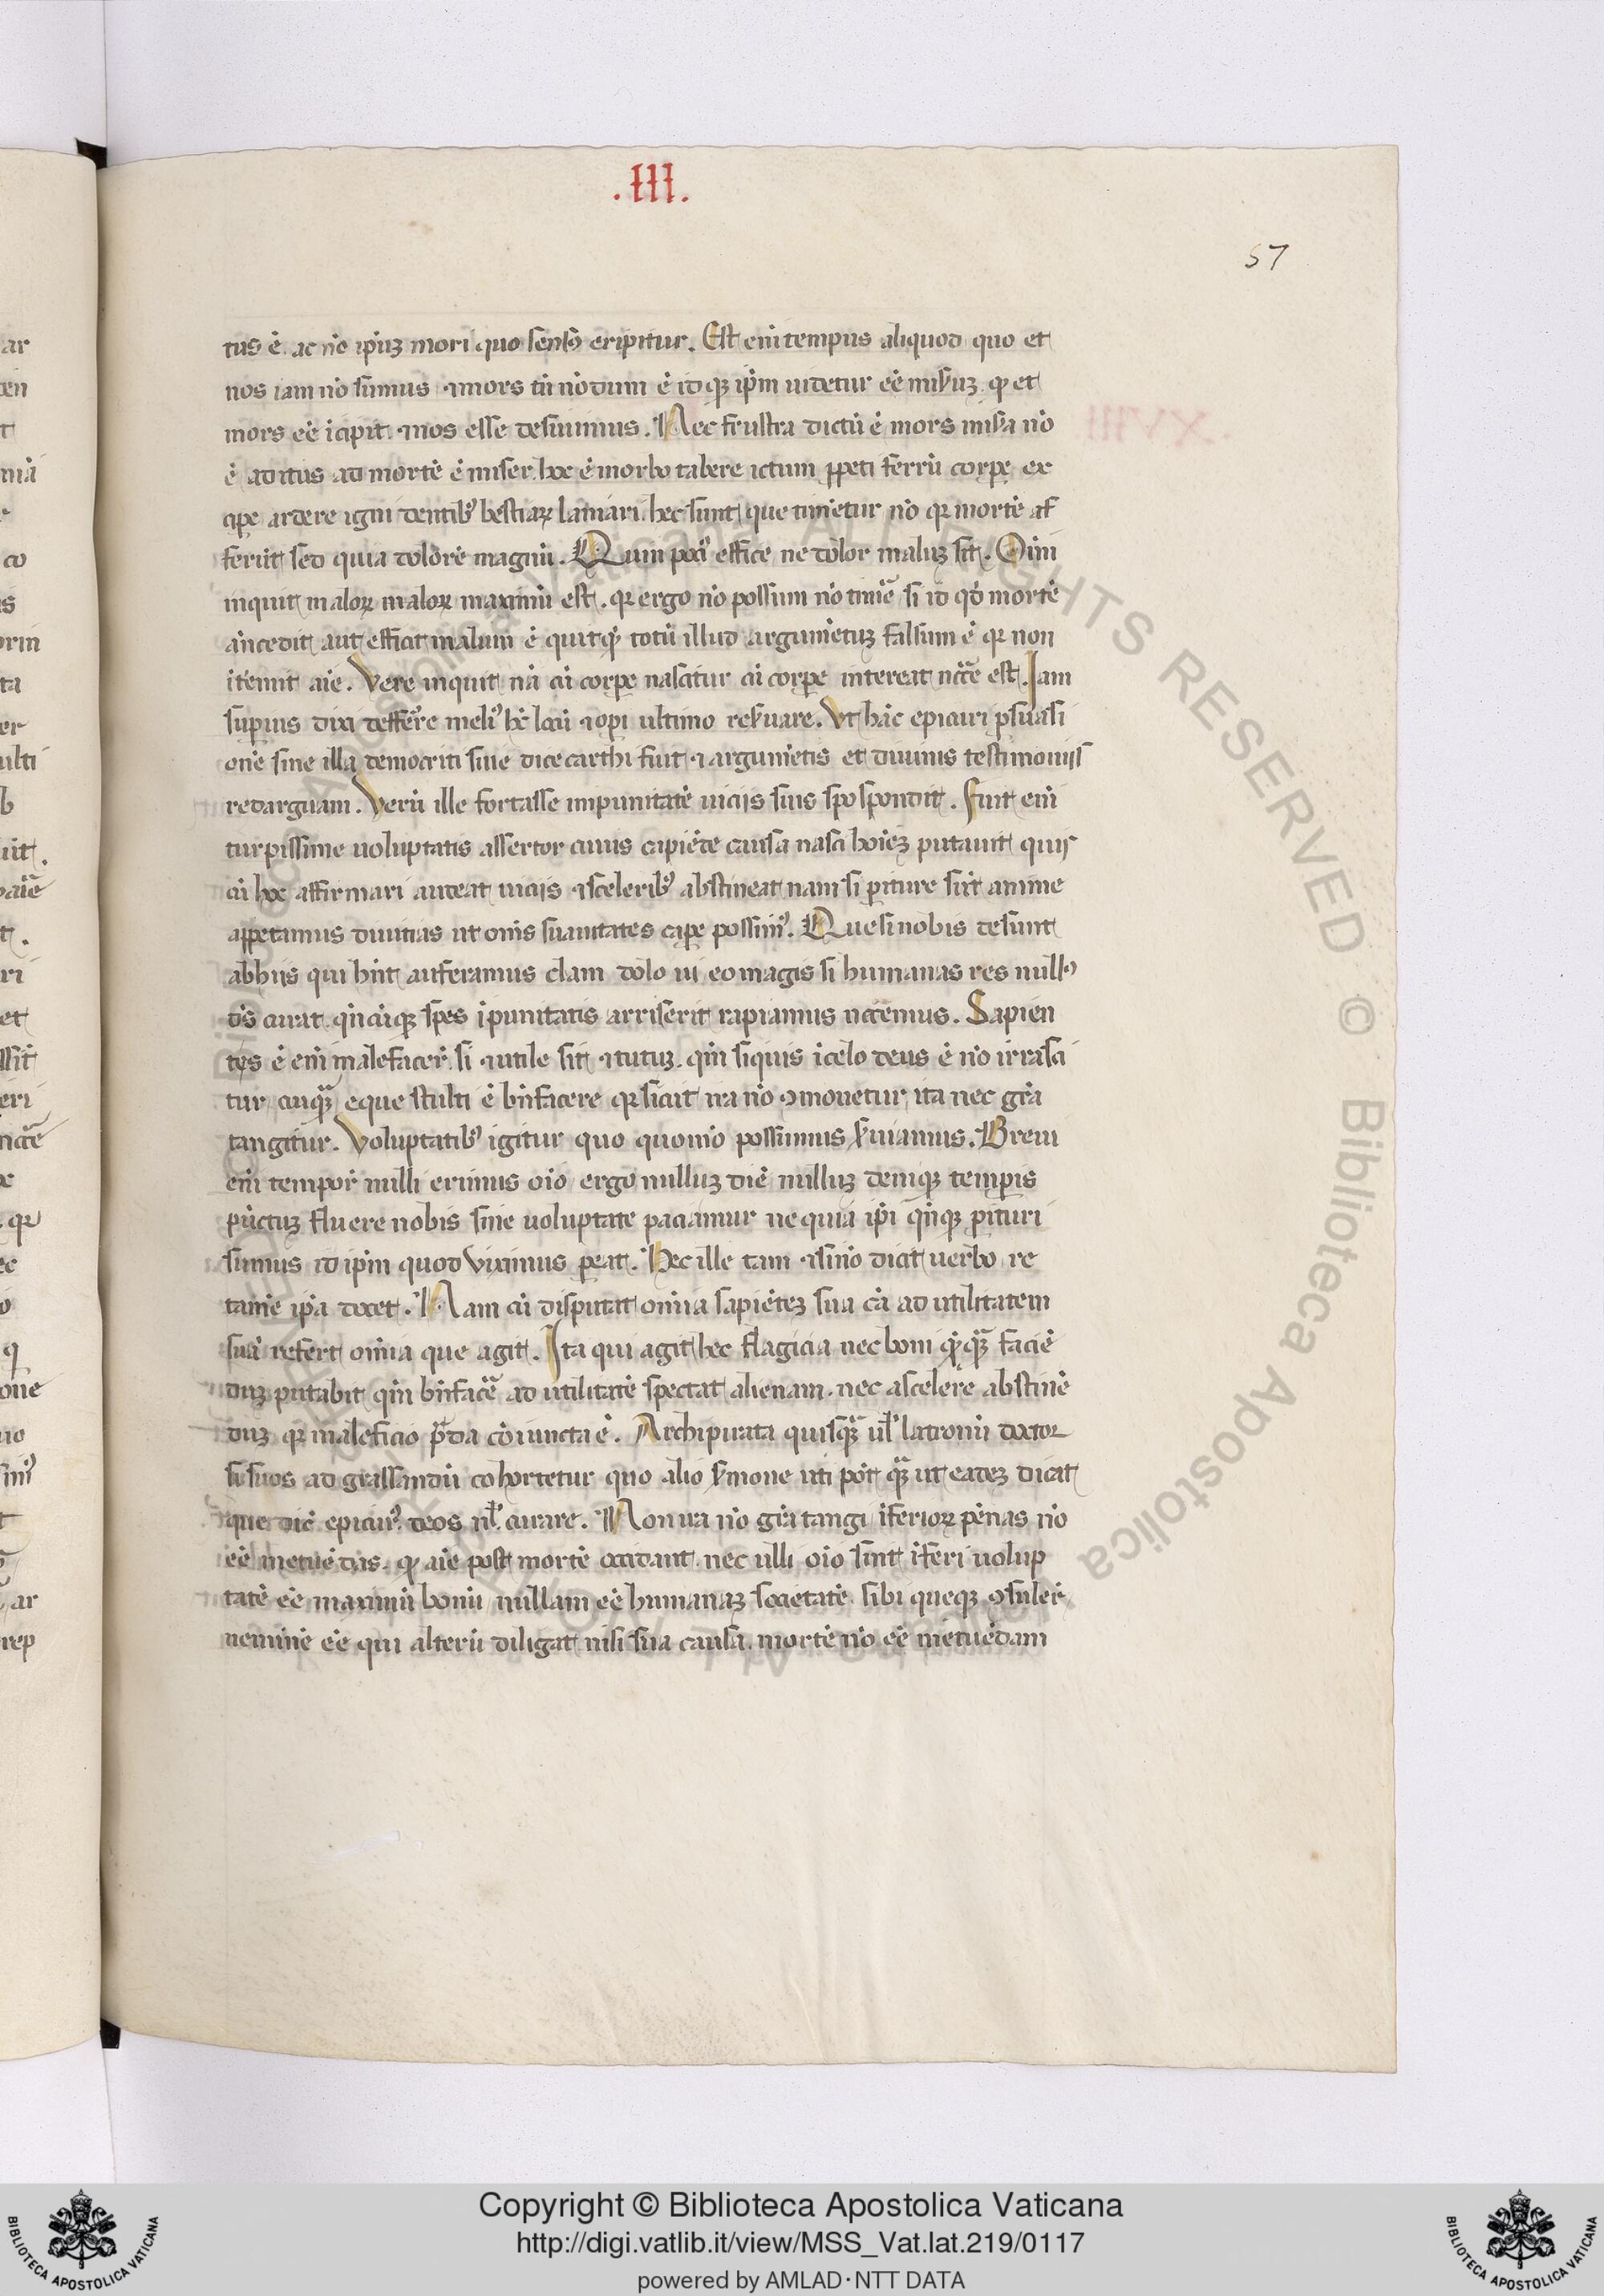 .III.
57
tus ē. ac nō ip̄ius mori quo sensꝰ eripitur. Est eni tempus aliquod quo et
nos iam nō sumus ⁊ mors tn̄ nōdum ē idqꝫ ip̄m uidetur eē misꝫ qꝛ et
mors eē īcipit ⁊ nos esse desinimus. Nec frustra dictū ē mors misa nō
ē aditus ad mortē ē miser. hoc ē morbo tabere ictum ꝑpeti ferrū corꝑe ex
cipe ardere igni dentibꝰ bestiaꝝ laniari. hec sunt que timētur nō qꝛ mortē af
ferūt sed quia dolorē magnū. Quin effice ne dolor malū sit. Oīm
inquit maloꝝ maloꝝ maximū est. qꝛ ergo nō possum nō timē si id qd̓ mortē
ancedit aut efficit malum ē totū illud argumētū falsum ē qꝛ non
īterunt aīe. Vere inquit nā cū corꝑe nascitur cū corꝑe intereat nccē est. Iam
suꝑius dixi deffere meliꝰ hc̄ locū ⁊ oꝑi ultimo resuare. Vt hāc epicuri ꝑsuasi
onē siue illa democriti siue dicecarthi fuit ⁊ argumētis et diuinis testimoniis
redarguam. Verū ille fortasse impunitatē uiciis suis spospondit. fuit eni
turpissime uoluptatis assertor cuius capiēde causa nasci hoīeꝫ putauit quis
cū hoc affirmari audeat uiciis ⁊ sceleribꝰ abstineat nam si ꝑiture sūt anime
appetamus diuitias ut omīs suauitates caꝑe possimꝰ. Que si nobis desunt
ab hiis qui hn̄t auferamus clam dolo ui eo magis si humanas res nullꝰ
ds̄ curat. qn̄cūqꝫ spes īpunitatis arriserit rapiamus necemus. Sapien
tes ē eni malefacer̄ si ⁊ utile sit ⁊ tutuꝫ. qm̄ siquis ī celo deus ē nō irrasci
tur cuiqꝫ eque stulti ē bn̄facere qꝛ sicut ira nō ꝯmouetur ita nec gra
tangitur. Voluptatibꝰ igitur quo quomō possumus suiamus. Breui
eni tempor̄ nulli erimus oīo ergo nulluꝫ diē nulluꝫ deniqꝫ temꝑis
pūctuꝫ fluere nobis sine uoluptate paciamur ne quia ip̄i qn̄qꝫ ꝑituri
sumus id ip̄m quod uiximus ꝑeat. Hec ille tam ⁊ si nō dicit uerbo re
tamē ip̄a docet. Nam cū disputat omnia sapiēteꝫ sua cā ad utilitatem
suā refert omnia que agit. Ita qui agit hec flagicia nec boni qͥcqͣ faciē
duꝫ putabit qm̄ bn̄facē ad utilitatē spectat alienam. nec a scelere abstinē
duꝫ qꝛ maleficio pͣda coniuncta ē. Archipirata quisqͣ ul̓ latronū doctor
si suos ad grassandū cohortetur quo alio smone uti pōt qͣ ut eadeꝫ dicat
que dic̄ epicurꝰ. deos nl̓ curare. Non ira nō grā tangi īferioꝝ penas nō
eē metuēdas. qꝛ aīe post mortē occidant. nec ulli oīo sint īferi uolup
tatē eē maximū bonū nullam eē humanaꝫ societatē sibi quēqꝫ ꝯsuler̄
neminē eē qui alterū diligat nisi sua causa. mortē nō eē metuēdam
Copyright © Biblioteca Apostolica Vaticana
http://digi.vatlib.it/view/MSS_Vat.lat.219/0117
powered by AMLAD·NTT DATA